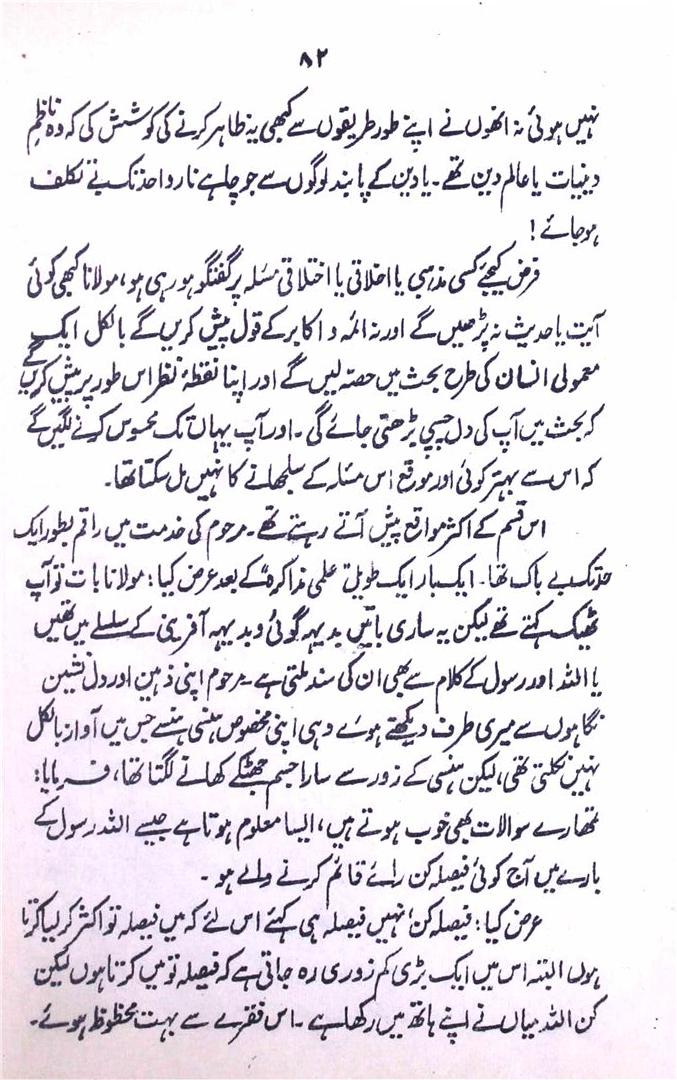 ۸۲
نہیں ہوئی نہ انھوں نے اپنے طور طریقوں سے کبھی یہ ظاہر کرنے کی کوشش کی کہ وہ ناظمِ
دینیات یا عالم دین تھے۔ یا دین کے پابند لوگوں سے جو چاہے ناروا حد تک بے تکلف
ہو جائے!
فرض کیجئے کسی مذہبی یا اخلاقی یا اختلافی مسئلہ پر گفتگو ہو رہی ہو، مولانا کبھی کوئی
آیت یا حدیث نہ پڑھیں گے اور نہ ائمہ و اکابر کے قول پیش کریں گے بالکل ایک
معمولی انسان کی طرح بحث میں حصہ لیں گے اور اپنا نقطۂ نظر اس طور پر پیش کریں گے
کہ بحث میں آپ کی دل چسپی بڑھتی جائے گی۔ اور آپ یہاں تک محسوس کرنے لگیں گے
کہ اس سے بہتر کوئی اور موقع اس مسئلہ کے سلجھانے کا نہیں مل سکتا تھا۔
اس قسم کے اکثر مواقع پیش آتے رہتے تھے۔ مرحوم کی خدمت میں راقم بطور ایک
حد تک بے باک تھا۔ ایک بار ایک طویل "علمی مذاکرہ" کے بعد عرض کیا: مولانا بات تو آپ
ٹھیک کہتے تھے لیکن یہ ساری باتیں بدیہہ گوئی و بدیہہ آفرینی کے سلسلے میں تھیں
یا اللہ اور رسول کے کلام سے بھی ان کی سند ملتی ہے۔ مرحوم اپنی ذہین اور دل نشین
نگاہوں سے میری طرف دیکھتے ہوے وہی اپنی مخصوص ہنسی ہنسے جس میں آواز بالکل
نہیں نکلتی تھی، لیکن ہنسی کے زور سے سارا جسم جھٹکے کھانے لگتا تھا، فرمایا:
تمھارے سوالات بھی خوب ہوتے ہیں، ایسا معلوم ہوتا ہے جیسے اللہ رسول کے
بارے میں آج کوئی فیصلہ کن رائے قائم کرنے والے ہو۔
عرض کیا: فیصلہ کن، نہیں فیصلہ ہی کہئے اس لئے کہ میں فیصلہ تو اکثر کر لیا کرتا
ہوں البتہ اس میں ایک بڑی کم زوری رہ جاتی ہے کہ فیصلہ تو میں کرتا ہوں لیکن
کن اللہ میاں نے اپنے ہاتھ میں رکھا ہے۔ اس فقرے سے بہت محظوظ ہوئے۔